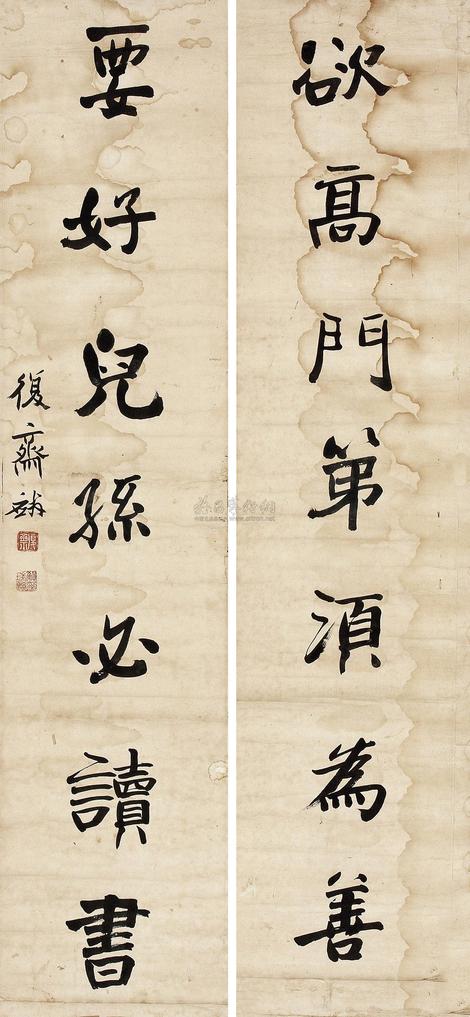 欲高門第須為善
要好兒孫必讀書
復齋